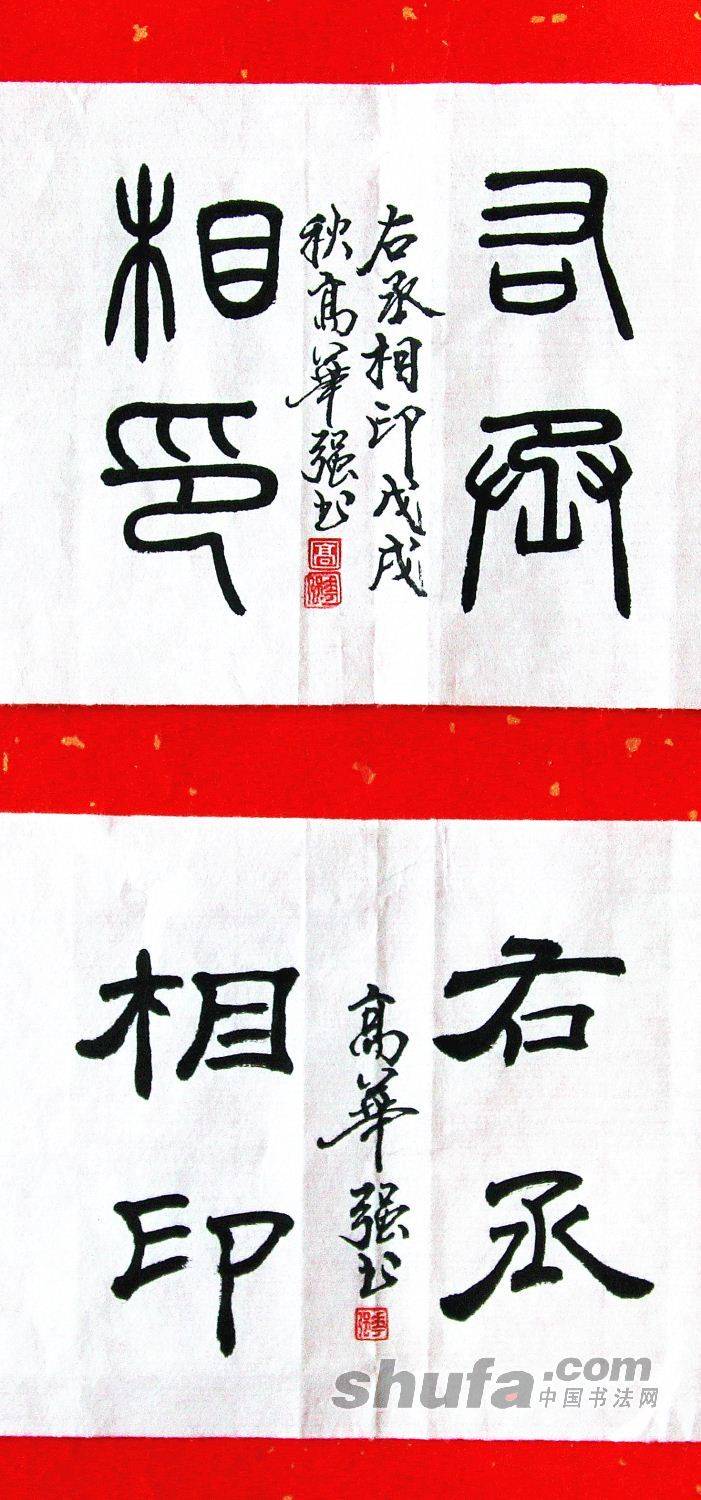 右丞
相印
右丞相印戊戌
秋高华强书
高
华强
右丞
相印
高华强书
华强
shufa.com
中国书法网